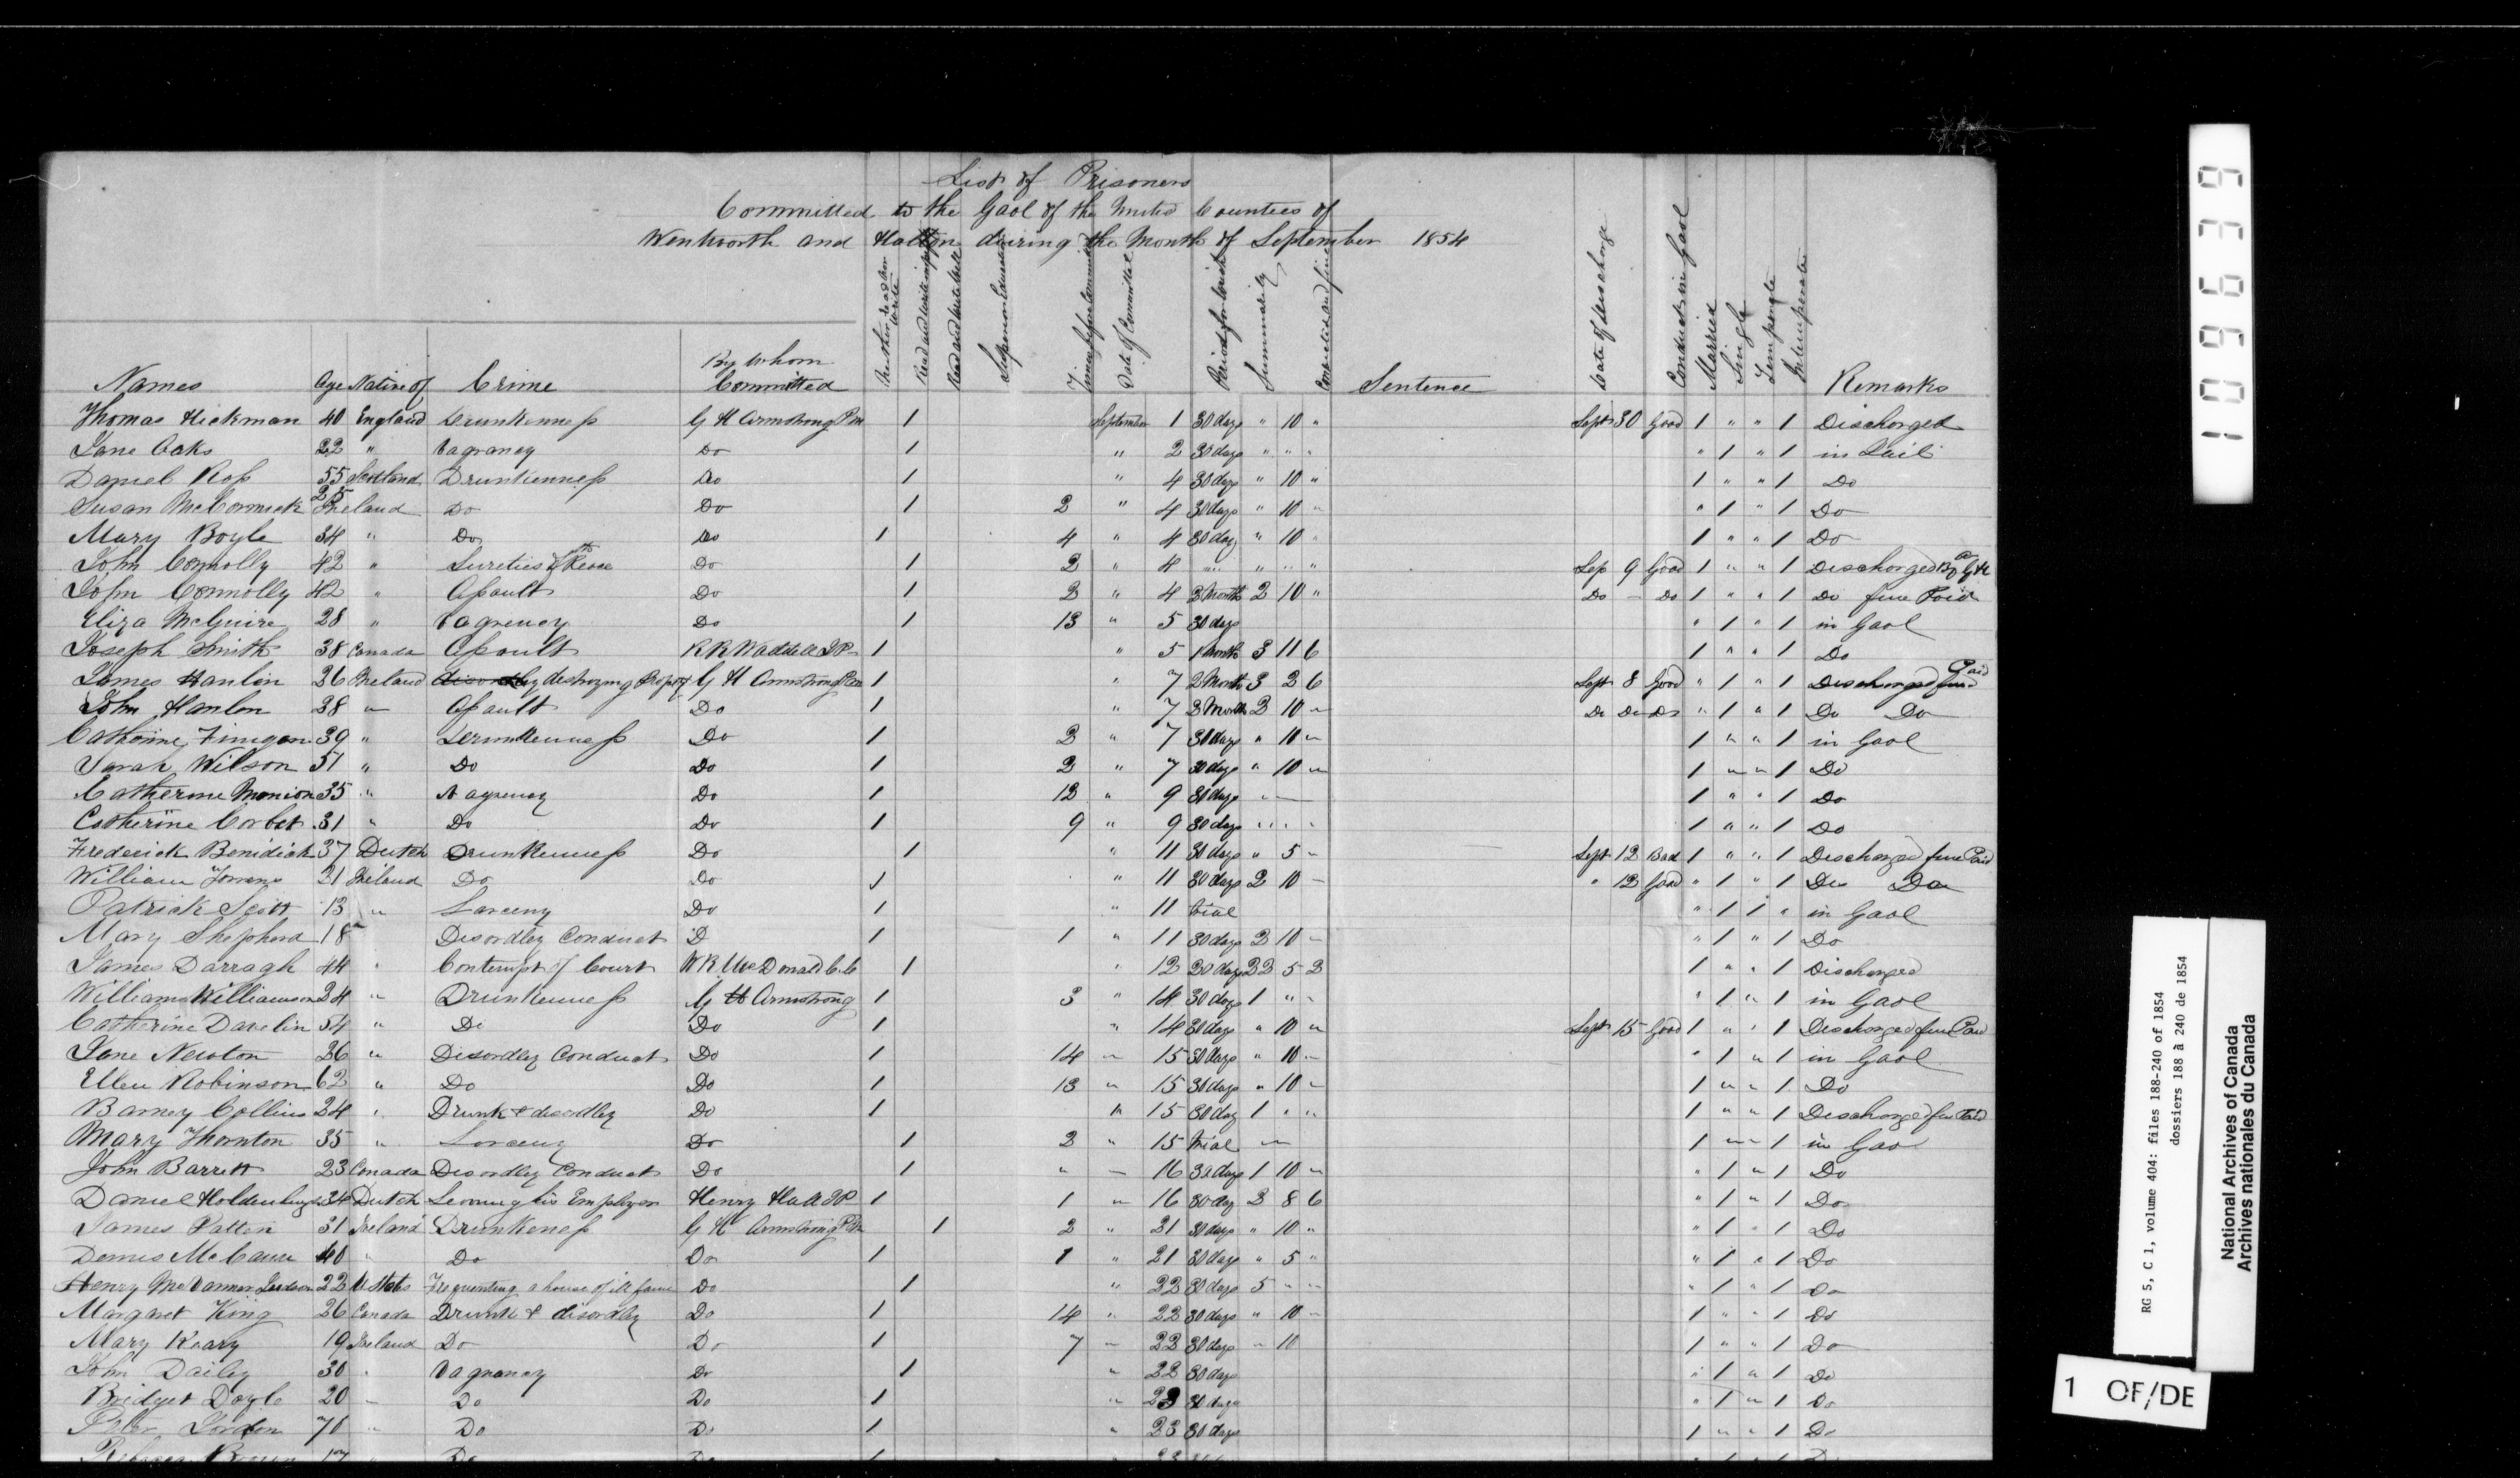 List of Prisoners
Committed to the Gaol of the United Counties of
Wentworth and Halton during the Month of September 1854
Names Age Native of Crime By Whom Committed Neither read nor write Read and write imperfectly Read and write well Superior Education Times before Committed Date of Committal Period for which Summarily Convicted and fine Sentence Date of discharge Conduct in Gaol Married Single Temperate Intemperate Remarks
Thomas Hickman 40 England Drunkenness G H Armstrong PM 1 September 1 30 days " 10 " Sept 30 Good 1 " " 1 Discharged
Jane Oaks 22 " Vagrancy Do 1 " 2 30 days " " " " 1 " 1 in Jail
Daniel Ross 55 Scotland Drunkenness Do 1 " 4 30 days " 10 " 1 " " 1 Do
Susan McCormick 25 Ireland Do Do 1 2 " 4 30 days " 10 " " 1 " 1 Do
Mary Boyle 34 " Do Do 1 4 " 4 30 day " 10 " 1 " " 1 Do
John Connolly 42 " Sureties of the Peace Do 1 2 " 4 " " " " Sep 9 Good 1 " " 1 Discharged By G H
John Connolly 42 " Assault Do 1 2 " 4 2 Month 2 10 " Do - Do 1 " " 1 Do fine Paid
Eliza McGuire 28 " Vagrancy Do 1 13 " 5 30 days " 1 " 1 in Gaol
Joseph Smith 38 Canada Assault R R Waddell JP 1 " 5 1 Month 3 11 6 1 " " 1 Do
James Hanlon 26 Ireland destroying Property G H Armstrong PM 1 " 7 2 Month 3 2 6 Sept 8 Good " 1 " 1 Discharged fine Paid
John Hanlon 28 " Assault Do 1 " 7 2 Month 2 10 " Do Do Do " 1 " 1 Do Do
Catherine Finigan 39 " Drunkenness Do 1 2 " 7 30 days " 10 " 1 " " 1 in Gaol
Sarah Wilson 51 " Do Do 1 2 " 7 30 days " 10 " 1 " " 1 Do
Catherine Monion 35 " Vagrency Do 1 12 " 9 30 days " 1 " " 1 Do
Catherine Corbet 31 " Do Do 1 9 " 9 30 days " " " 1 " " 1 Do
Frederick Benidick 37 Dutch Drunkenness Do 1 " 11 30 days " 5 " Sept 12 Bad 1 " " 1 Discharged fine Paid
William 21 Ireland Do Do 1 " 11 30 days 2 10 " " 12 Good " 1 " 1 Do Do
Patrick Scott 13 " Larceny Do 1 " 11 trial " 1 1 " in Gaol
Mary Shepherd 18 " Disordley Conduct D 1 1 " 11 30 days 2 10 " " 1 " 1 Do
James Darragh 44 " Contempt of Court W R McDonald C.C 1 " 12 20 days 22 5 2 1 " " 1 Discharged
William Williamson 24 " Drunkenness G H Armstrong 1 3 " 14 30 days 1 " " " 1 " 1 in Gaol
Catherine 54 " Do Do 1 " 14 30 days " 10 " Sept 15 Good 1 " " 1 Discharged fine Paid
Jane Newton 26 " Disordley Conduct Do 1 14 " 15 30 days " 10 " " 1 " 1 in Gaol
Ellen Robinson 62 " Do Do 1 13 " 15 30 days " 10 " 1 " " 1 Do
Barney Collins 24 " Drunk & disordley Do 1 " 15 30 day 1 " " 1 " " 1 Discharged fine Paid
Mary Thornton 35 " Larceny Do 1 2 " 15 trial " 1 " " 1 in Gaol
John Barrett 23 Canada Disordley Conduct Do 1 " " 16 30 days 1 10 " " 1 " 1 Do
Daniel 34 Dutch Leaving his Employer Henry Hall JP 1 1 " 16 30 day 2 8 6 " 1 " 1 Do
James Patten 31 Ireland Drunkeness G H Armstrong PM 1 2 " 21 30 days " 10 " " 1 " 1 Do
Dennis 40 " Do Do 1 1 " 21 30 days " 5 " " 1 " 1 Do
Henry 22 U States Frequenting a house of ill fame Do 1 " 22 30 days 5 " " " 1 " 1 Do
Margaret King 26 Canada Drunk & disordley Do 1 14 " 22 30 days " 10 " 1 " " 1 Do
Mary Keary 19 Ireland Do Do 1 7 " 22 30 days " 10 1 " " 1 Do
John Dailey 30 " Vagrancy Do 1 " 22 30 days " 1 " 1 Do
Bridget Doyle 20 " Do Do 1 " 23 30 days " 1 " 1 Do
Peter 70 " Do Do 1 " 23 30 days 1 " " 1 Do
109639
RG 5, C 1, volume 404: files 188-240 of 1854
dossiers 188 à 240 de 1854
National Archives of Canada
Archives nationales du Canada
1 OF/DE